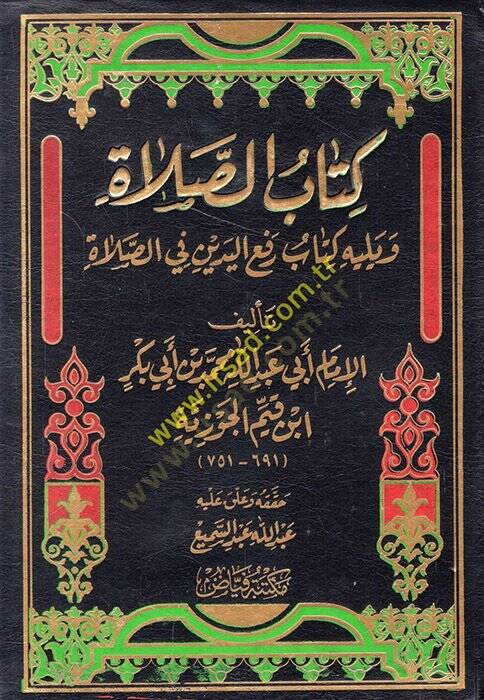 كِتَابُ الصَّلَاة
وَيَليه كِتَابُ رَفع اليَدَين فِي الصَّلَاة
تَأليف
الإمَام أَبي عَبدالله مُحمَّد بن أَبي بَكرٍ
ابن قيّم الجَوزيّة
(٦٩١ - ٧٥١)
حَقّقهُ وَعَلّق عَليه
عَبدالله عَبد السَّميع
مَكتَبة فيّاض
www.irsad.com.tr
www.irsad.com.tr